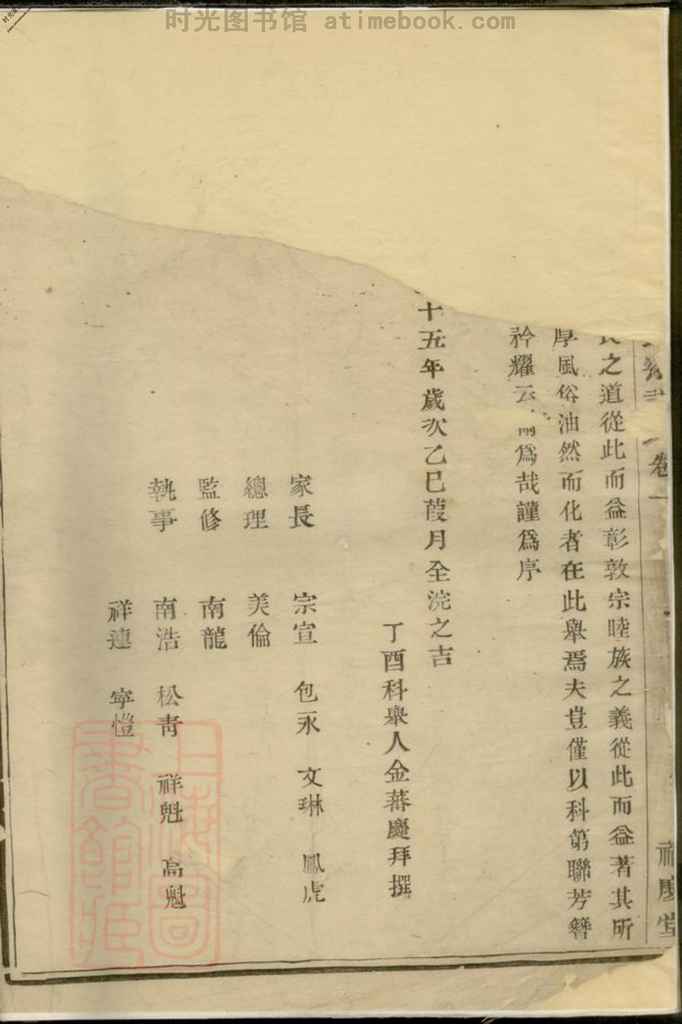 时光图书馆 atimebook.com
卷一
之道從此而益彰敦宗睦族之義從此而益著其所
厚風俗油然而化者在此舉焉夫豈僅以科第聯芳簪
衿耀云爾爲哉謹爲序
十五年歲次乙巳葭月全浣之吉
丁酉科舉人金蕃慶拜撰
家長 宗宣 包永 文琳 鳳虎
總理 美倫
監修 南龍
執事 南浩 松靑 祥魁 高魁
祥連 寧愷
上海圖書館藏